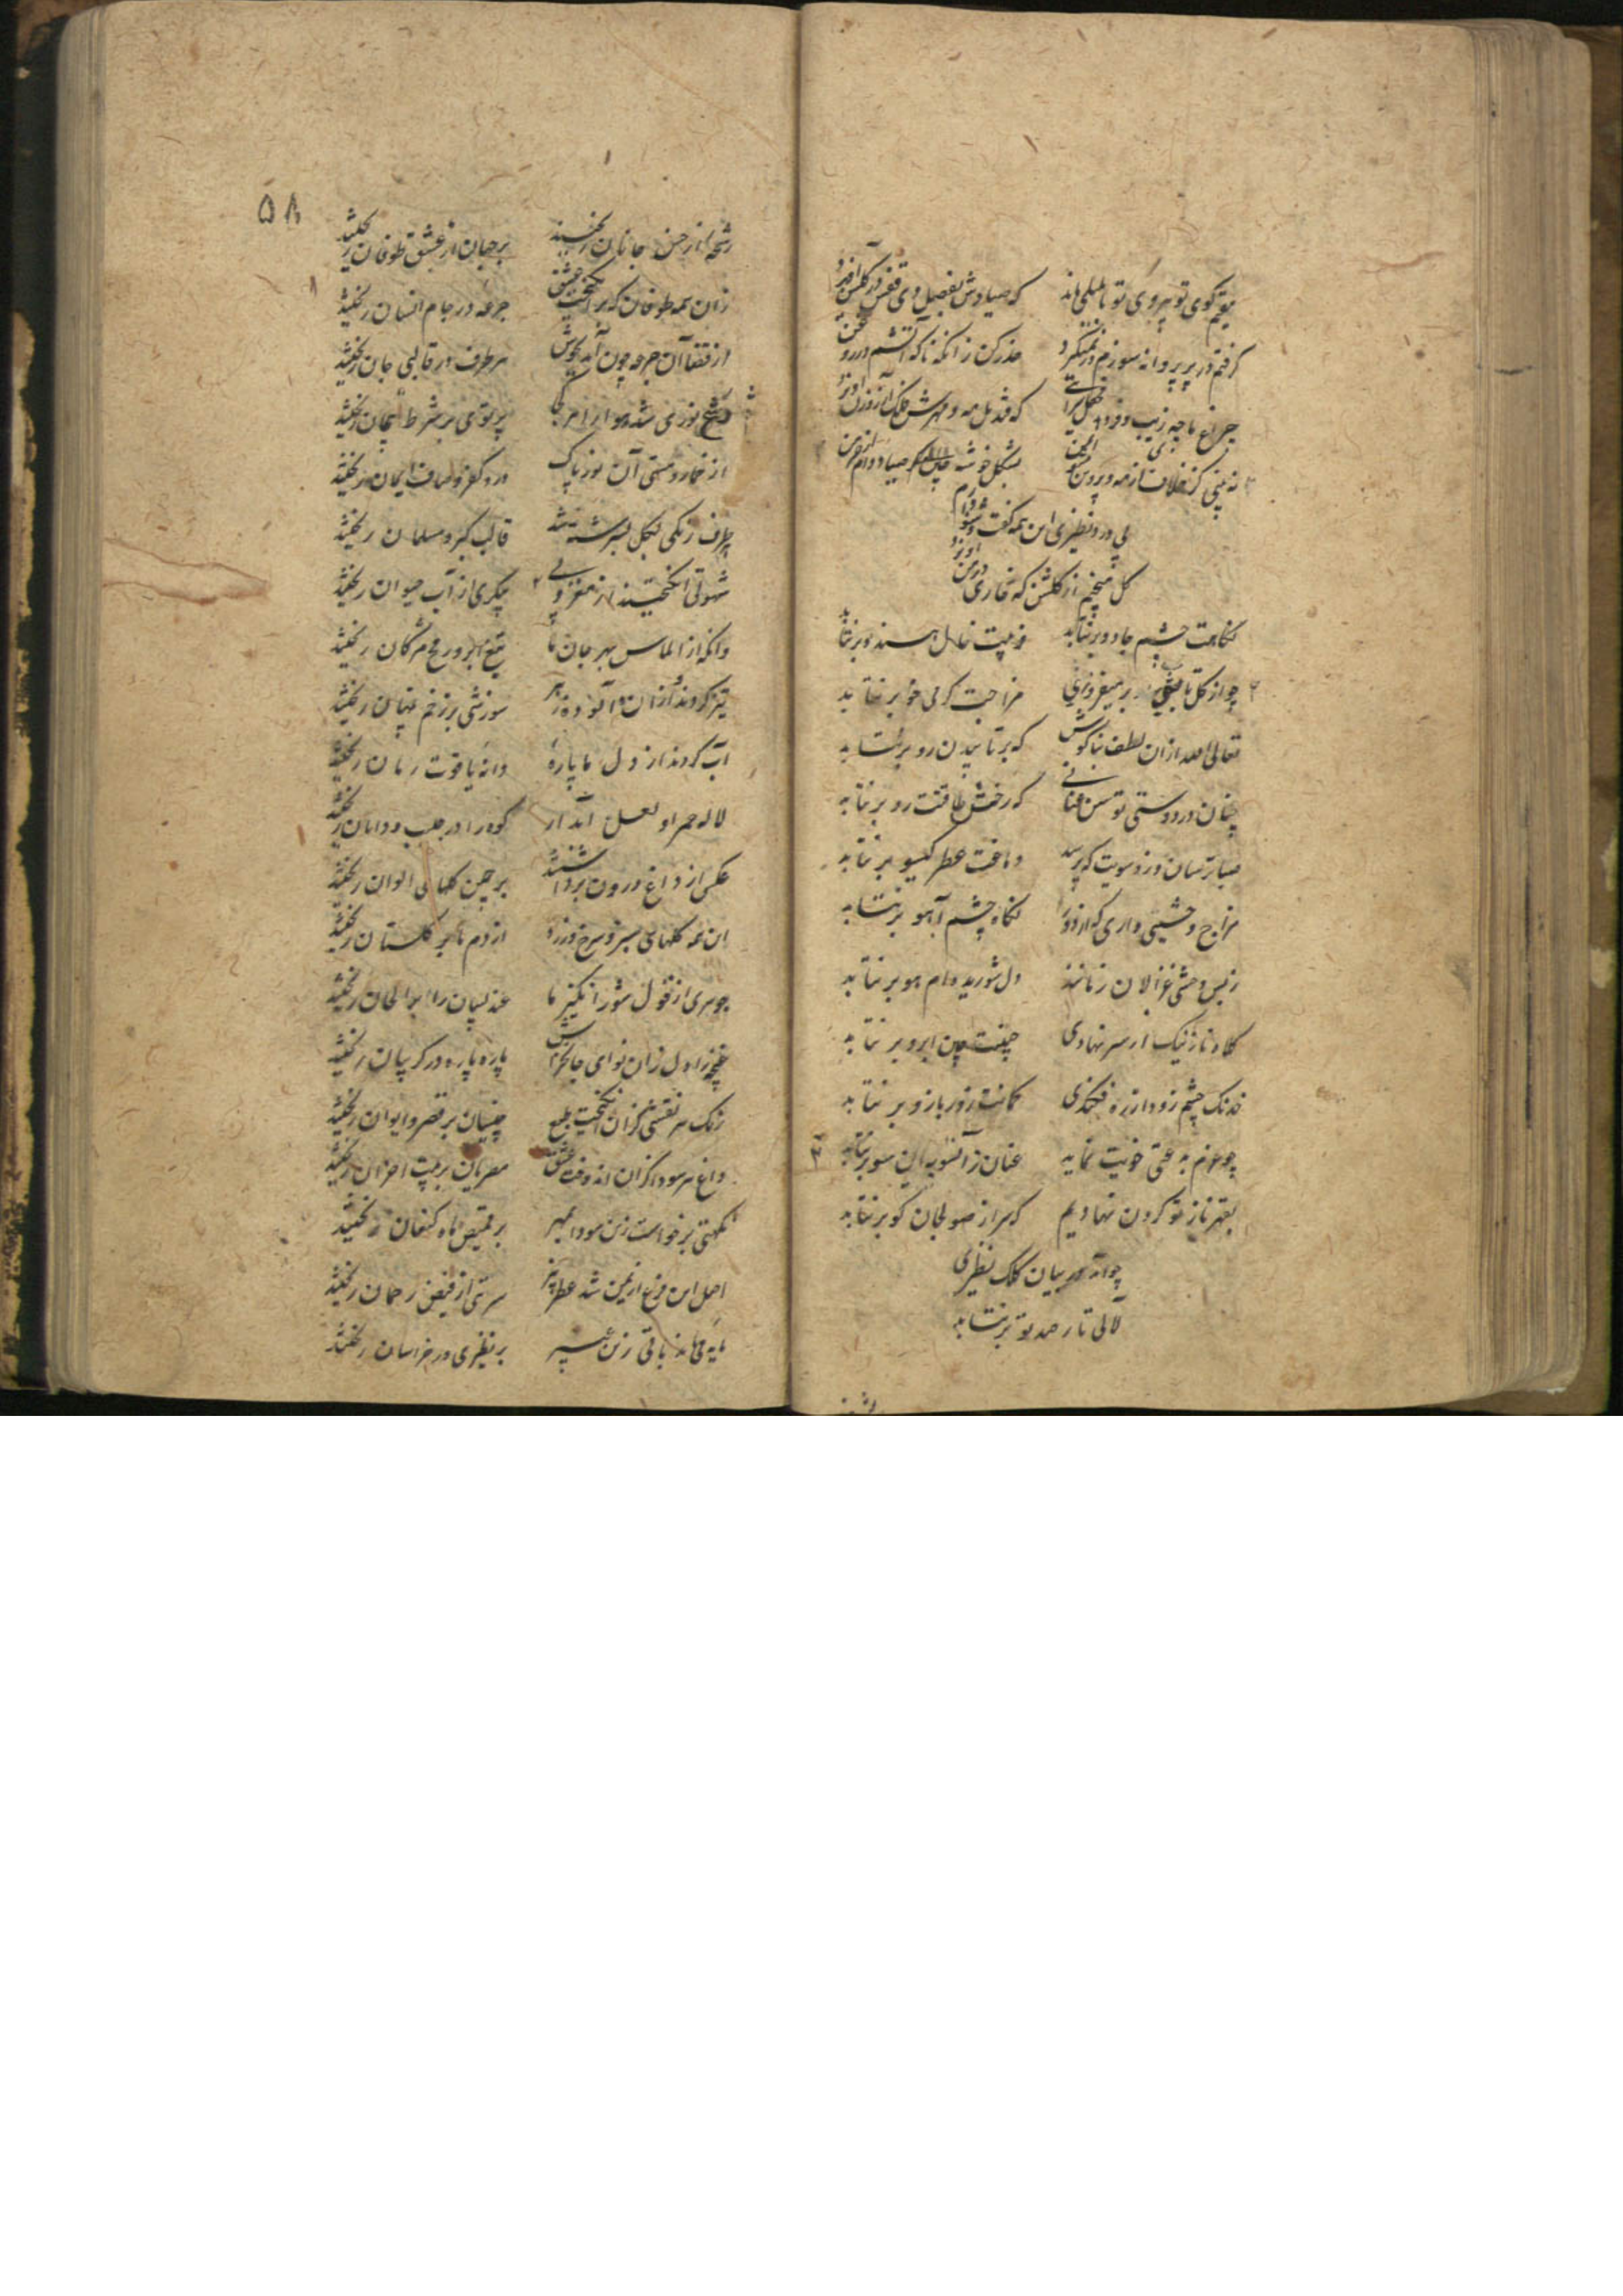 مقیم کوی تو بیروی تو تا بلبلی ماند که صیادش بفصل دی قفس در گلشن آویزد
گرفتم در پر پروانه سوزم در نمیگیرد حذر کن زانکه ناگه آتشم در
چراغ ما چه زیب و فر دهد که قندیل مه و مهرش فلک از روزن آویزد
نه بینی کز مه و پروین بشکل خوشه صیاد دام از خرمن آویزد
پی درد نظیری این همه گفت و شنو دارم
گل میچینم از گلشن که خاری در من آویزد
نگاهت چشم جادو برنتابد فریبت خال هندو برنتابد
چو از گل تا مزاجت گرمی خو برنتابد
تعالی الله ازان لطف بناگوش که برتابیدن رو برنتابد
چنان در دوستی توسن عنانی که رخش طاقتت رو برنتابد
صبا ترسان وزد سویت که ترسد دماغت عطر گیسو برنتابد
مزاج وحشیی داری که از دور نگاه چشم آهو برنتابد
ز بس وحشی غزالان رمانند دل شوریده ام هو برنتابد
کلاه ناز نیک از سر نهادی جبینت چین ابرو برنتابد
خدنگ چشم زود از زه فکندی کمانت زور بازو برنتابد
چو عزم به عنان زآنسو به این سو برنتابد
بقهر ناز تو گردن نهادیم که سر از صولجان گو برنتابد
چو آید در بیان کلک نظیری
لآلی تار صد تو برنتابد
۵۸
رشحه از حسن جانان ریختند بر جهان از عشق طوفان ریختند
زان همه طوفان که بر انگیخت عشق جرعه در جام انسان ریختند
از قفا آن جرعه چون آمد بجوش هر طرف در قالبی جان ریختند
نوری شد هوا از پرتوی بر شرط پیمان ریختند
از خمار و مستی آن نور پاک درد کفر و صاف ایمان ریختند
هر طرف رنگی بگل بسرشته شد قالب گبر و مسلمان ریختند
شهوتی انگیختند از مغز و پی پیکری از آب حیوان ریختند
وانگه از الماس بهر جان ما تیغ ابرو رمح مژگان ریختند
تیز کردند آن زهر سوزشی بر زخم پنهان ریختند
آب کردند از دل ما پاره دانه یاقوت رمان ریختند
لاله حمرا و لعل آبدار کوه را در جیب و دامان ریختند
عکسی از داغ درون برداشتند بر چمن گلهای الوان ریختند
این همه گلهای سبز و سرخ و زرد از دم ما بر گلستان ریختند
جوهری از قول شور انگیز ما عندلیبان را بر الحان ریختند
غنچه را دل زان نوای جانخراش پاره پاره در گریبان ریختند
رنگ هر نقشی کزان انگیخت طبع چینیان بر قصر و ایوان ریختند
داغ هر سودا کزان اندوخت عشق مصریان بر بیت احزان ریختند
نکهتی برخواست زین سودا بمهر بر قمیص ماه کنعان ریختند
اصل این فرع از یمن شد عطر بیز سرّی از فیض رحمان ریختند
مایه میماند باقی زین سپهر بر نظیری در خراسان ریختند